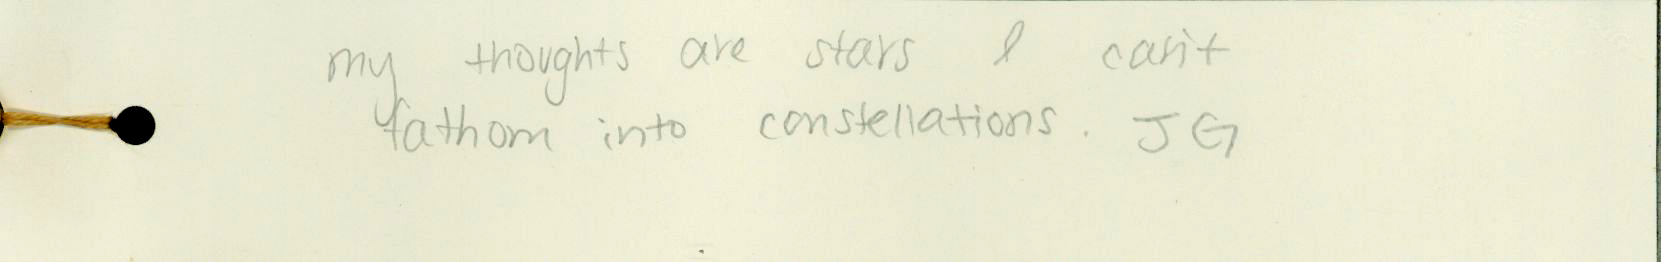 my thoughts are stars I can't
fathom into constellations. JG